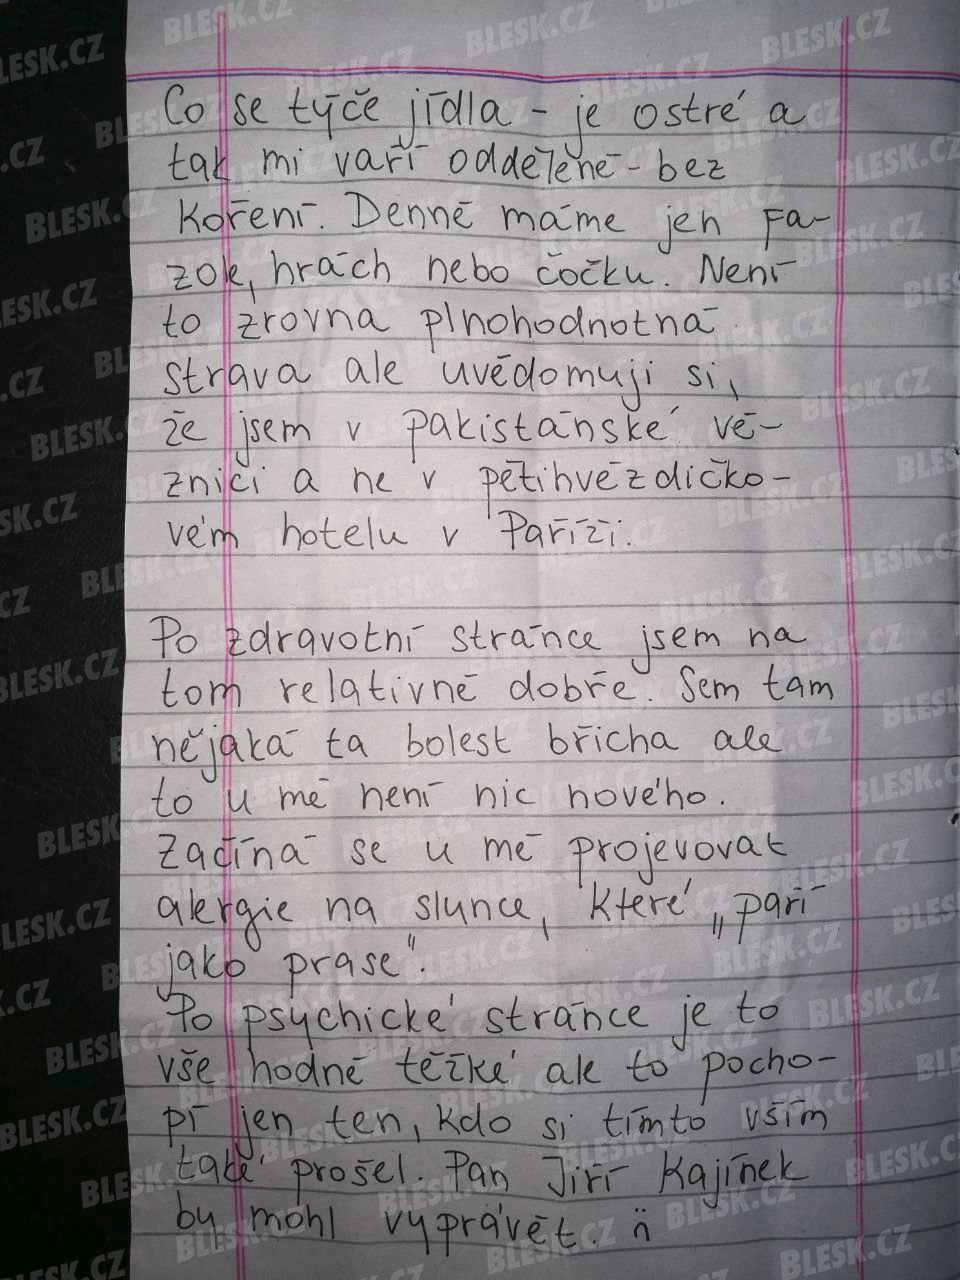 Co se týče jídla - je ostré a
tak mi vaří odděleně - bez
koření. Denně máme jen fa-
zole, hrách nebo čočku. Není
to zrovna plnohodnotná
strava ale uvědomuji si,
že jsem v pakistánské vě-
znici a ne v pětihvězdičko-
vém hotelu v Paříži.
Po zdravotní stránce jsem na
tom relativně dobře. Sem tam
nějaká ta bolest břicha ale
to u mě není nic nového.
Začíná se u mě projevovat
alergie na slunce, které „paří
jako prase".
Po psychické stránce je to
vše hodně těžké ale to pocho-
pí jen ten, kdo si tímto vším
také prošel. Pan Jiří Kajínek
by mohl vyprávět. ü
BLESK.CZ